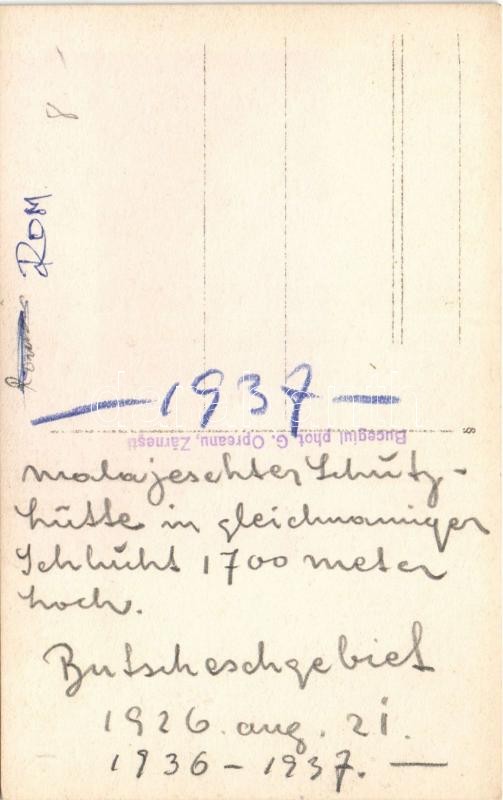 8 -
ROM.
— 1937 —
Bucegiul phot. G. Opreanu, Zărnești
Malajeschter Schutz-
hütte in gleichnamiger
Schlucht 1700 meter
hoch.
Butscheschgebiet
1926. aug. 21.
1936 – 1937. —